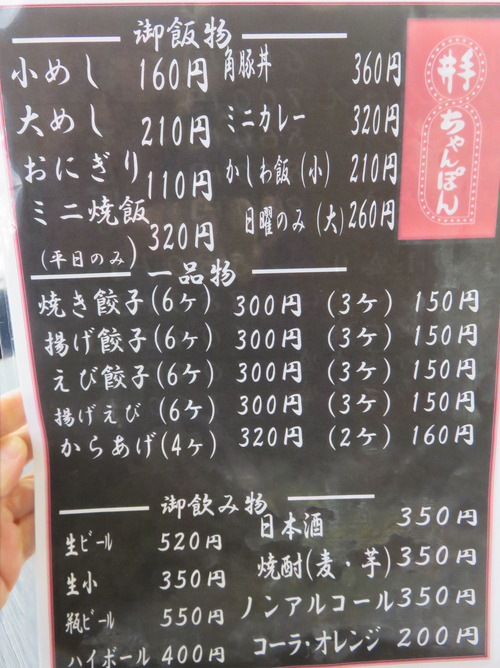 御飯物
小めし 160円
大めし 210円
おにぎり 110円
ミニ焼飯 320円
(平日のみ)
角豚丼 360円
ミニカレー 320円
かしわ飯(小) 210円
日曜のみ(大) 260円
井手ちゃんぽん
一品物
焼き餃子(6ヶ) 300円 (3ケ) 150円
揚げ餃子(6ヶ) 300円 (3ケ) 150円
えび餃子(6ヶ) 300円 (3ケ) 150円
揚げえび (6ヶ) 300円 (3ケ) 150円
からあげ(4ヶ) 320円 (2ケ) 160円
御飲み物
生ビール 520円
生小 350円
瓶ビール 550円
ハイボール 400円
日本酒 350円
焼酎(麦・芋) 350円
ノンアルコール 350円
コーラ・オレンジ 200円